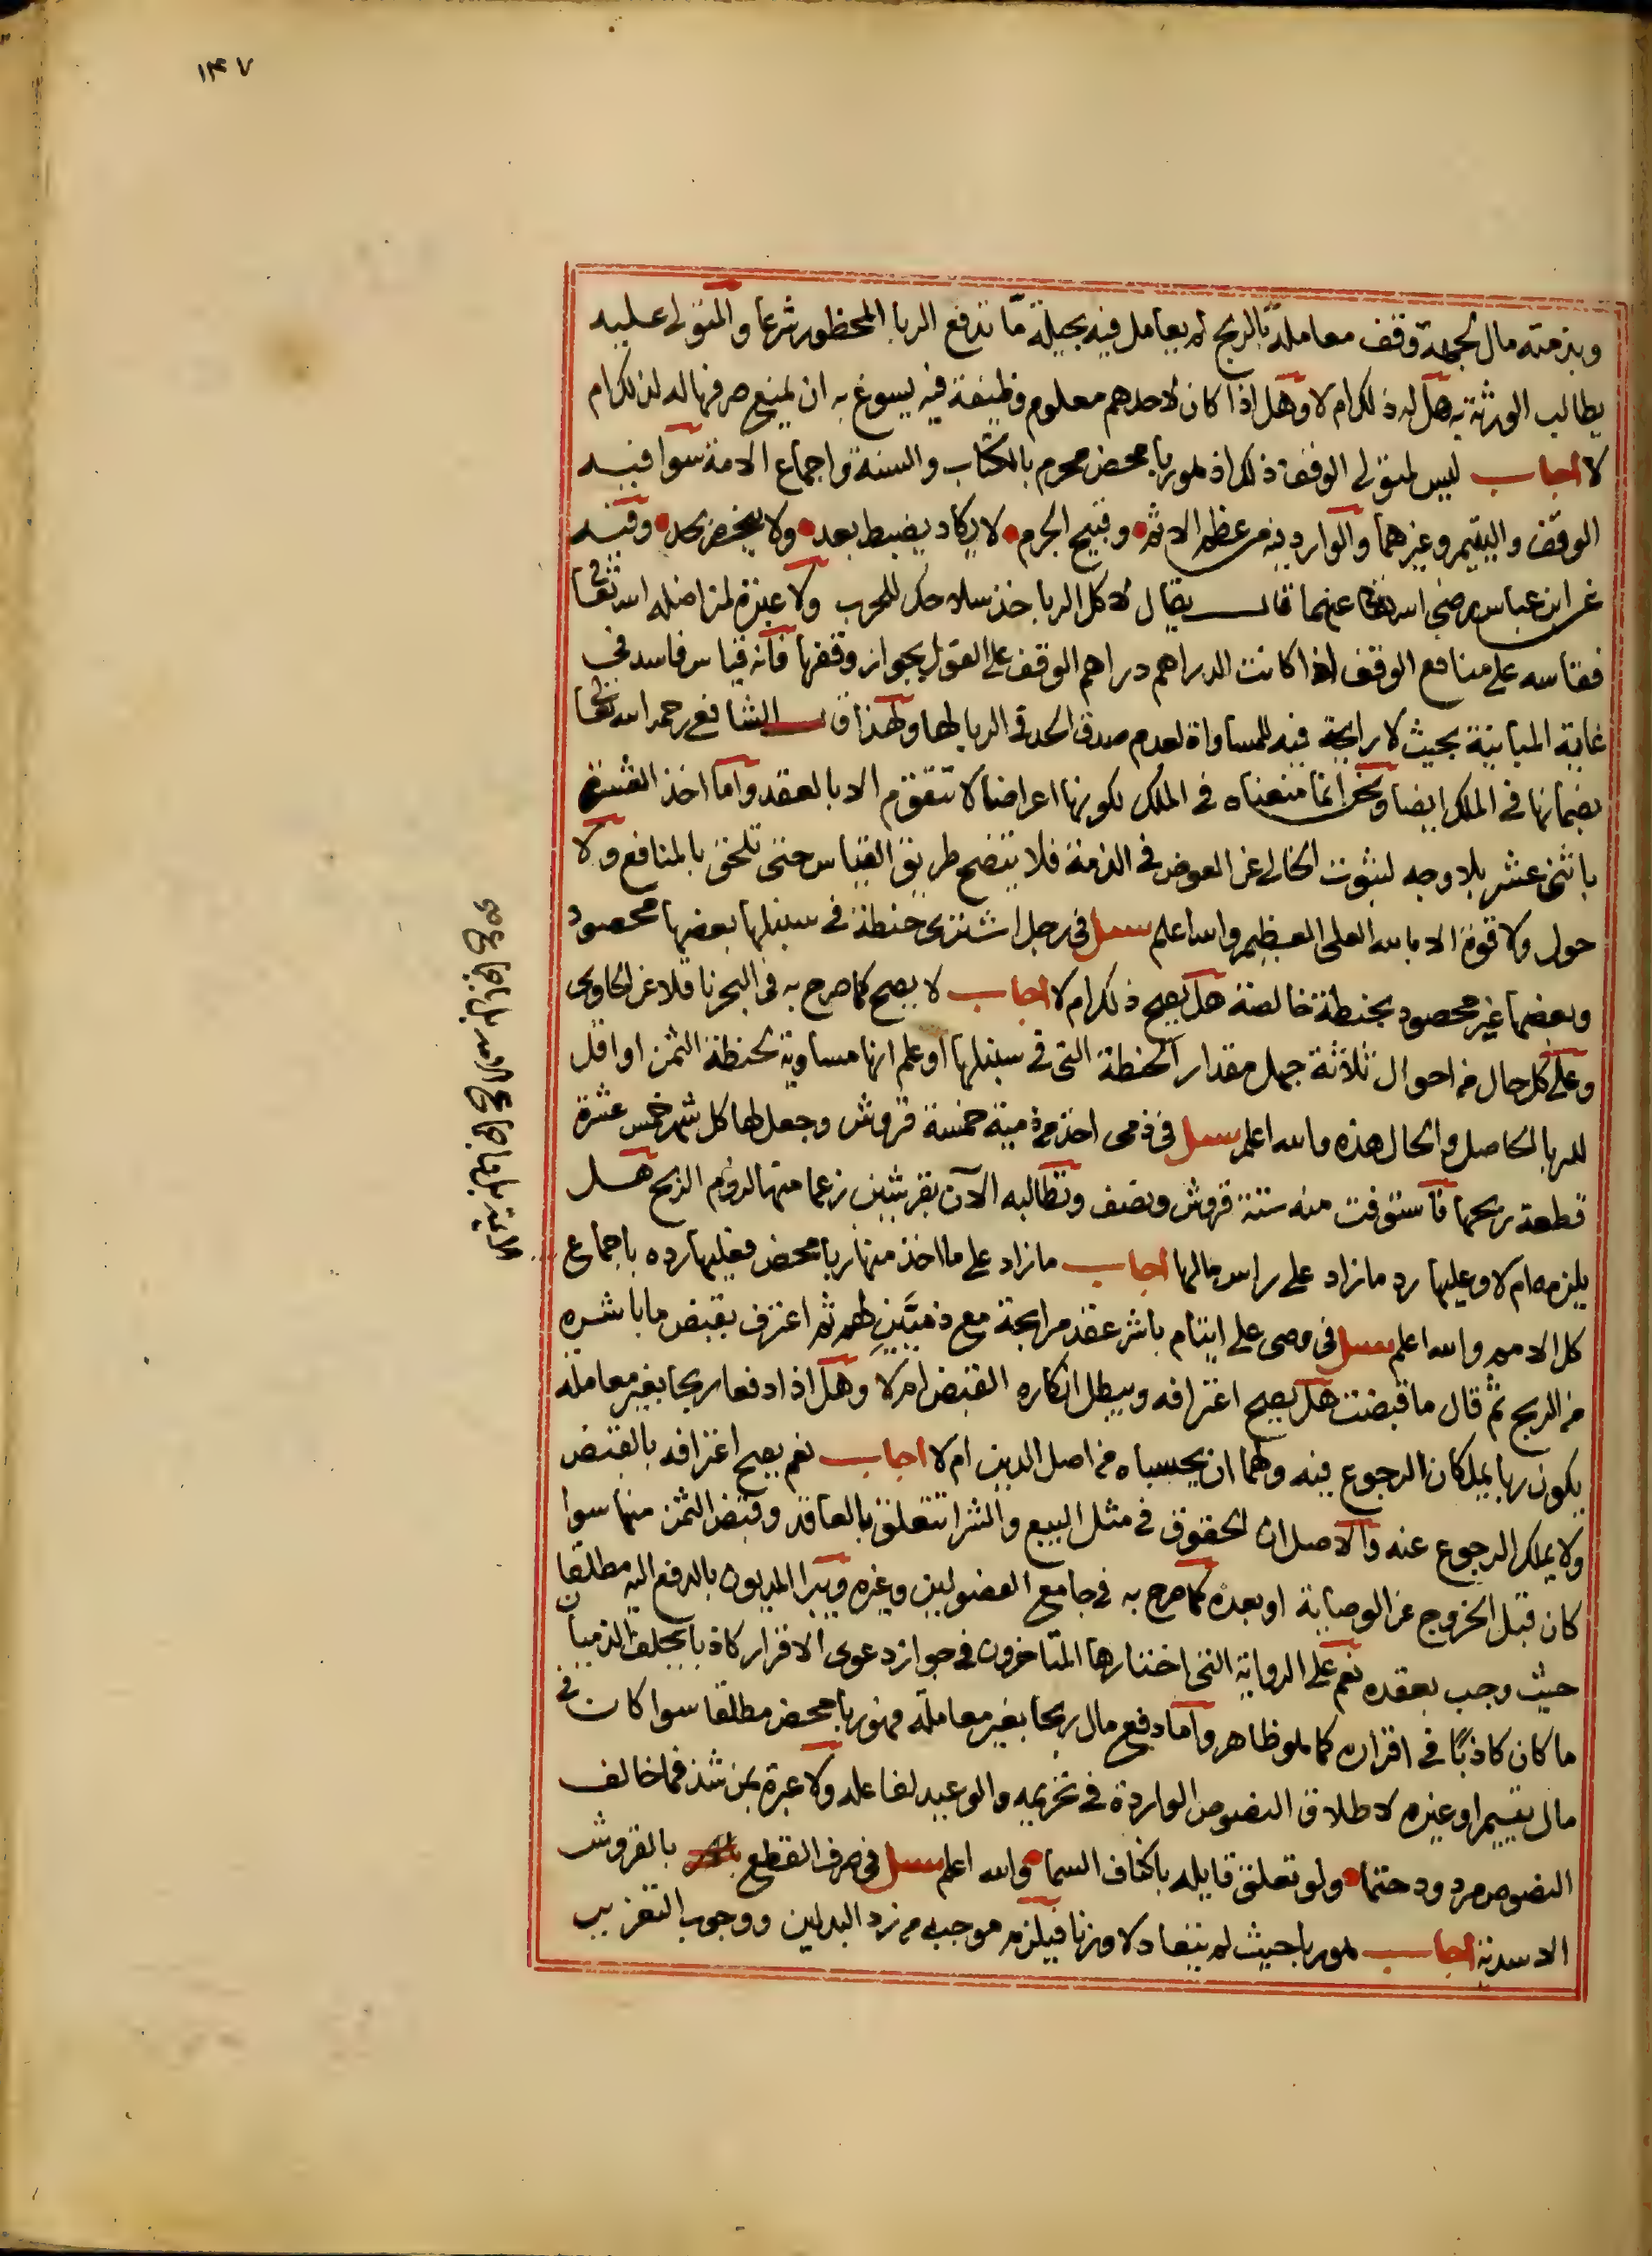 ١٤٧
وبذمته مال لجهة وقف معاملة بالربح لم يعامل فيه بحيلة ما تدفع الربا المحظور شرعا والمتولى عليه
يطالب الورثة به هل له ذلك ام لا وهل اذا كان لاحدهم معلوم وظيفة فيه يسوغ به ان يمنع صرفها له لذلك ام
لا اجاب ليس لمتولى الوقف ذلك اذ هو ربا محض محرم بالكتاب والسنة واجماع الامة سوا فيه
الوقف واليتيم وغيرهما والوارد فيه من عظم الاثم وقبيح الجرم لا يكاد يضبط بعد ولا ينحصر بحد وفيه
عن ابن عباس رضى الله تعالى عنهما قال يقال لاكل الربا خذ سلاحك للحرب ولا عبرة لمن اضله الله تعالى
فقاسه على منافع الوقف اذا كانت الدراهم دراهم الوقف على القول بجواز وقفها فانه قياس فاسد فى
غاية المباينة بحيث لا رايحة فيه للمساواة لعدم صدق الحد فى الربا لها ولهذا قال الشافعى رحمه الله تعالى
بضمانها فى الملك ايضا ونحن انما منعناه فى الملك لكونها اعراضا لا تتقوم الا بالعقد واما اخذ العشرة
باثنى عشر بلا وجه لثبوت الخالى عن العوض فى الذمة فلا يتضح طريق القياس حتى تلحق بالمنافع ولا
حول ولا قوة الا بالله العلى العظيم والله اعلم سئل فى رجل اشترى حنطة فى سنبلها بعضها محصود
وبعضها غير محصود بحنطة خالصة هل يصح ذلك ام لا اجاب لا يصح كما صرح به فى البحر ناقلا عن الحاوى
وعلى كل حال من احوال ثلاثة جهل مقدار الحنطة التى فى سنبلها او علم انها مساوية لحنطة الثمن او اقل
للربا الحاصل والحال هذه والله اعلم سئل فى ذمى اخذ من ذمية خمسة قروش وجعل لها كل شهر خمس عشرة
قطعة ربحها فاستوفت منه ستة قروش ونصف وتطالبه الآن بقرشين زعما منها لزوم الربح هل
يلزمه ام لا وعليها رد ما زاد على راس مالها اجاب ما زاد على ما اخذ منها ربا محض فعليها رده باجماع
كل الامه والله اعلم سئل فى وصى على ايتام باشر عقد مرابحة مع ذميين لهم ثم اعترف بقبض ما باشره
من الربح ثم قال ما قبضت هل يصح اعترافه ويبطل انكاره القبض ام لا وهل اذا دفعا ربحا بغير معاملة
يكون ربا يملكان الرجوع فيه ولهما ان يحسباه من اصل الدين ام لا اجاب نعم يصح اعترافه بالقبض
ولا يملك الرجوع عنه والاصل ان الحقوق فى مثل البيع والشرا تتعلق بالعاقد وقبض الثمن منها سوا
كان قبل الخروج عن الوصاية او بعده كما صرح به فى جامع الفصولين وغيره ويبرا المديون بالدفع اليه مطلقا
حيث وجب بعقده نعم على الرواية التى اختارها المتاخرون فى جواز دعوى الاقرار كاذبا يحلف الذميان
ما كان كاذبًا فى اقراره كما هو ظاهر واما دفع مال ربحا بغير معاملة فهو ربا محض مطلقا سوا كان فى
مال يتيم او غيره لاطلاق النصوص الواردة فى تحريمه والوعيد لفاعله ولا عبرة بمن شذ فما خالف
النصوص مردود حتما ولو تعلق قايله باكناف السما والله اعلم سئل فى صرف القطع بالقروش
الاسدية اجاب هو ربا حيث لم يتعادلا وزنا فيلزم موجبه من رد البدلين ووجوب التعزير